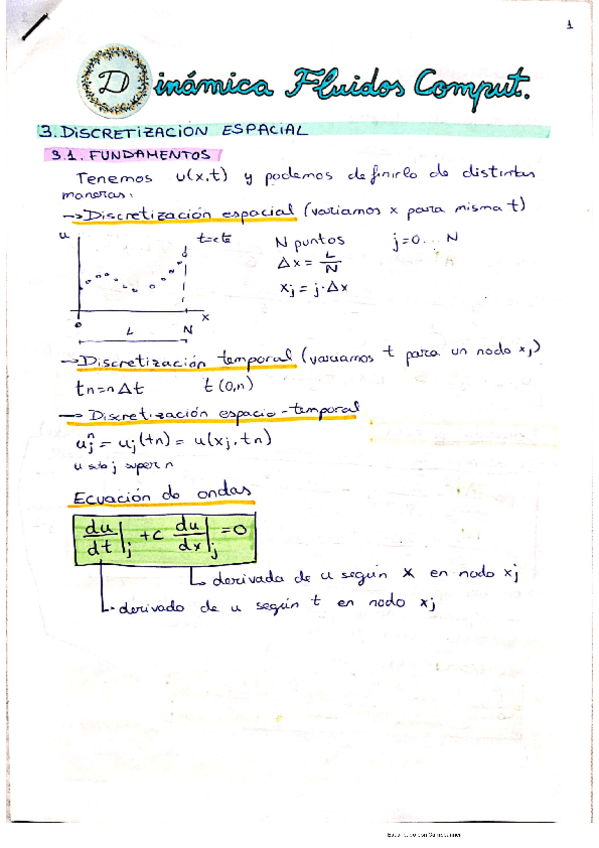 1
Dinámica Fluidos Comput.
3. DISCRETIZACION ESPACIAL
3.1. FUNDAMENTOS
Tenemos u(x,t) y podemos definirlo de distintas
maneras:
→ Discretización espacial (variamos x para misma t)
u t=cte N puntos j=0... N
Δx = L/N
xj = j·Δx
x
0 L N
→ Discretización temporal (variamos t para un nodo xj)
tn=nΔt t(0,n)
→ Discretización espacio-temporal
u_j^n = uj(tn) = u(xj, tn)
u sub j super n
Ecuación de ondas
du/dt|j + c du/dx|j = 0
derivada de u según x en nodo xj
derivado de u según t en nodo xj